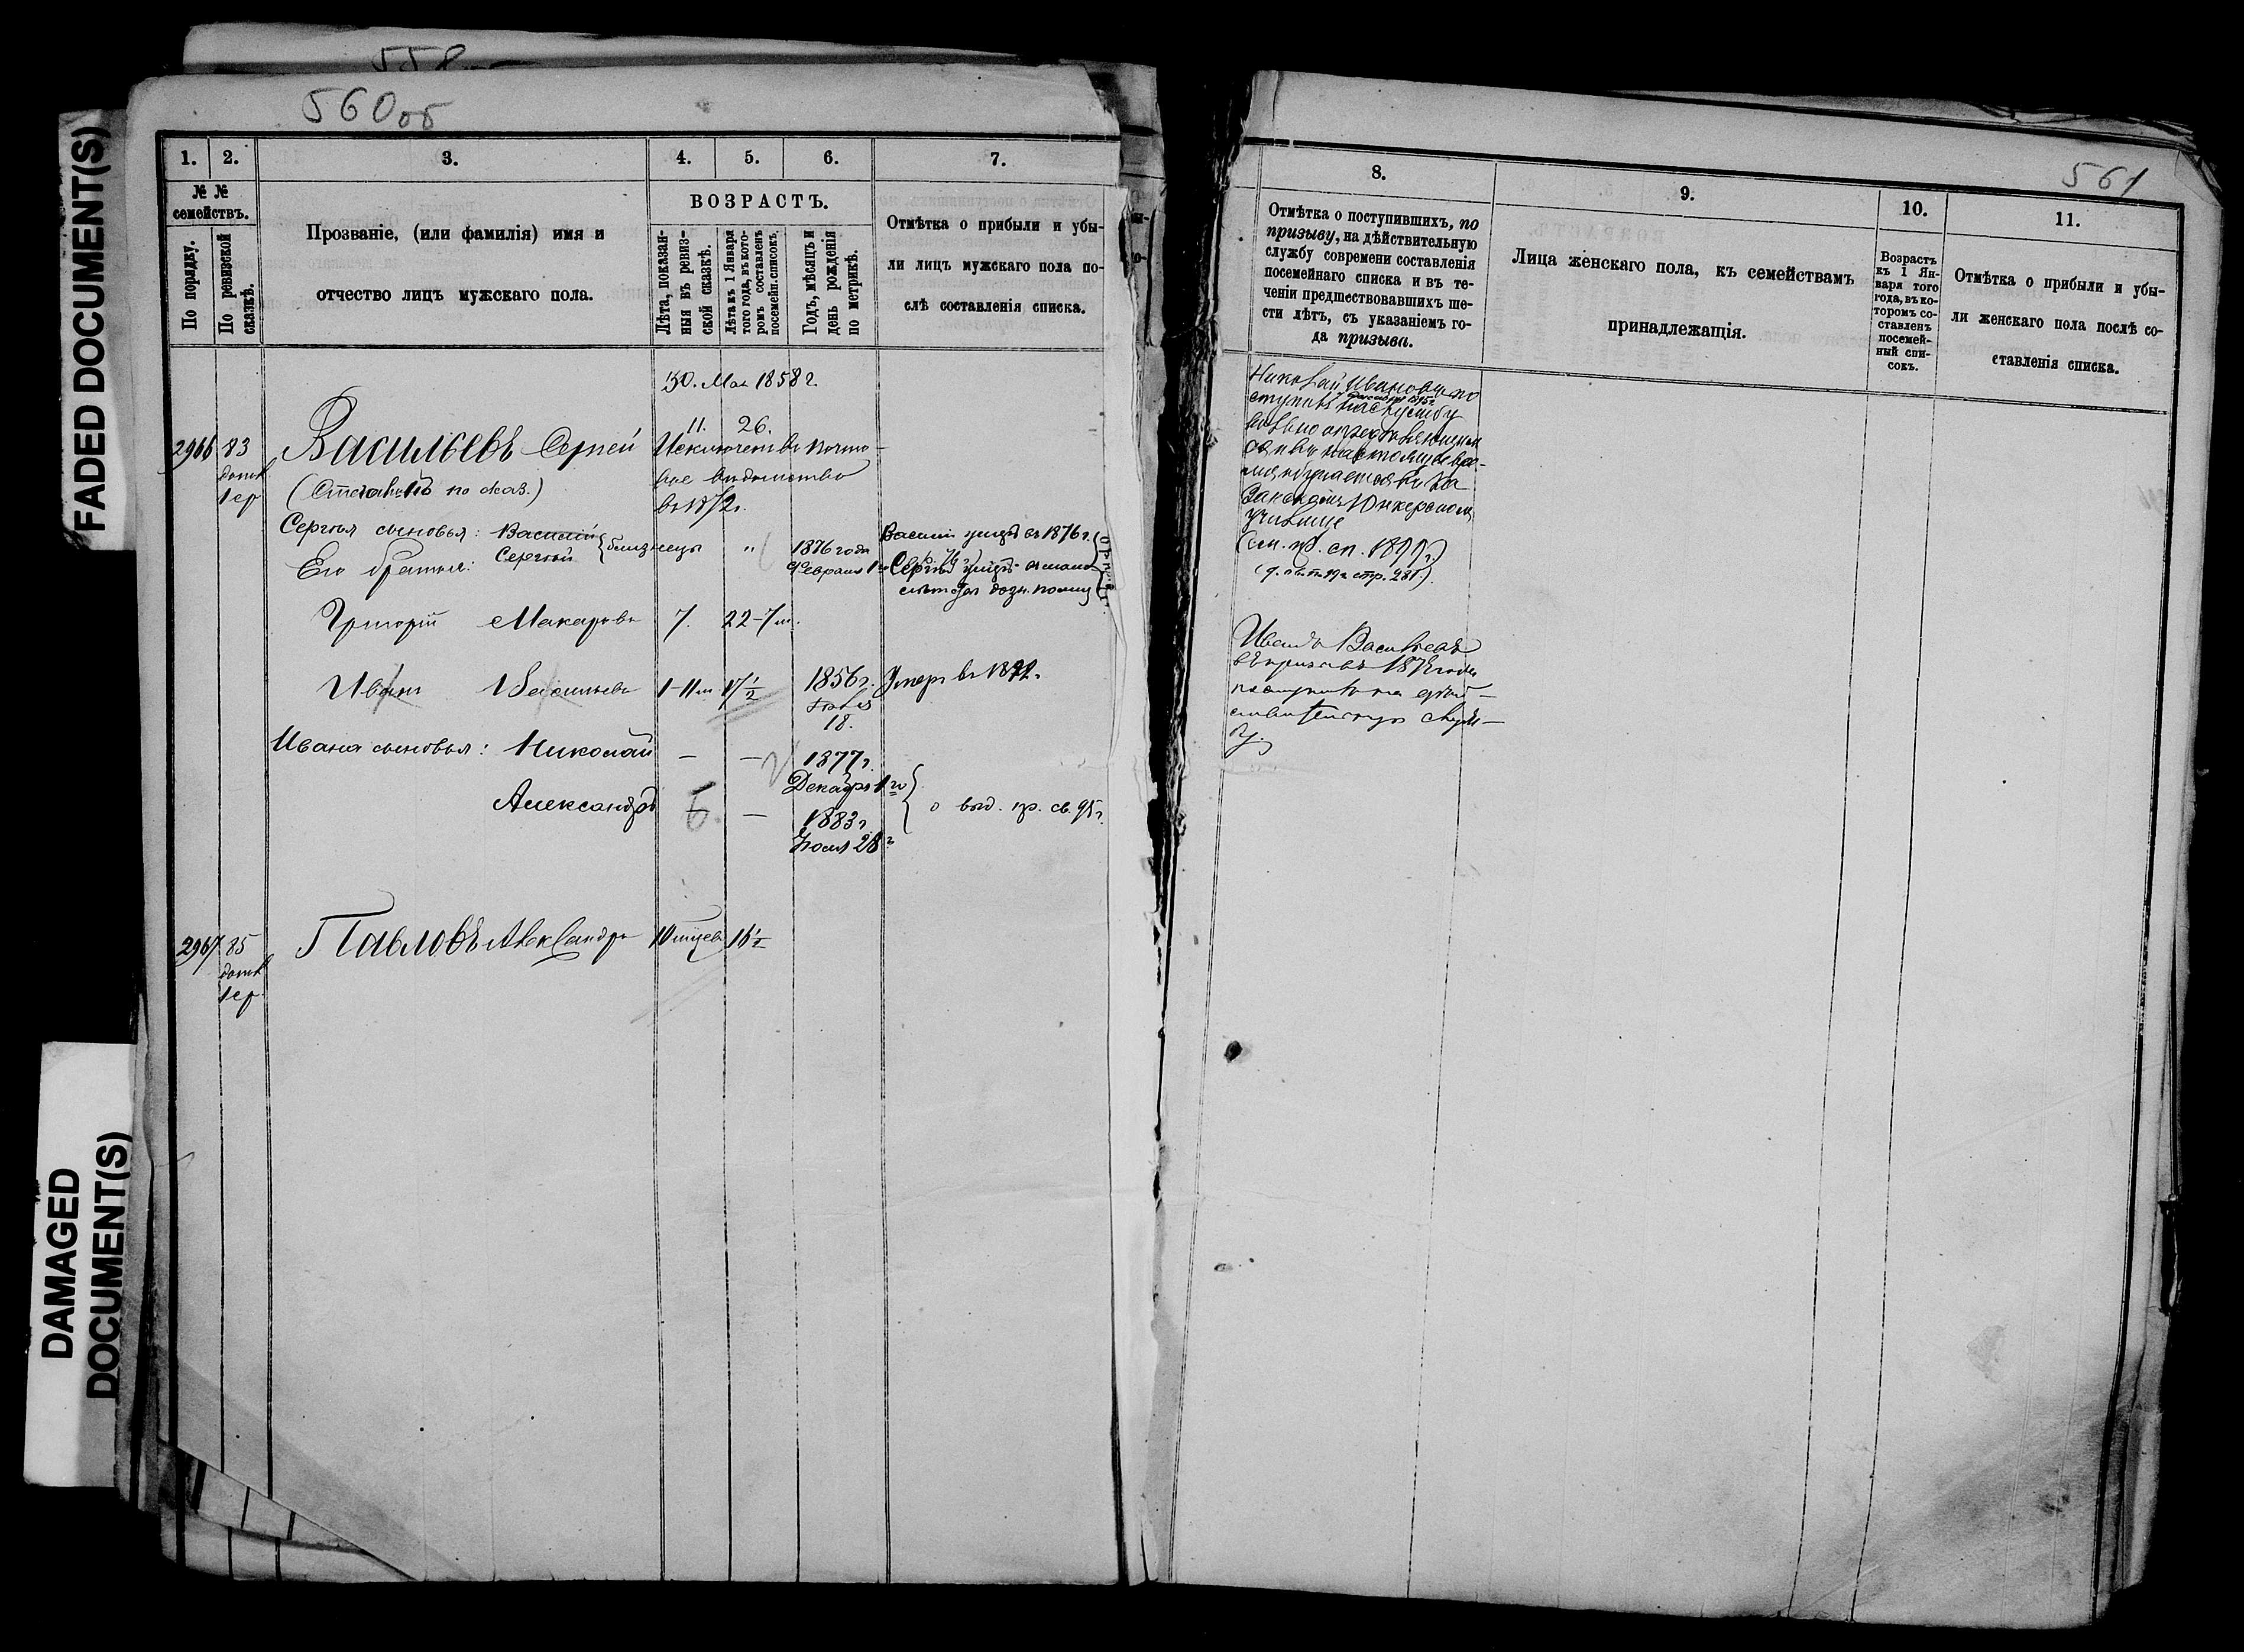 558
560об
561
FADED DOCUMENT(S)
DAMAGED
DOCUMENT(S)
1.
2.
3.
4.
5.
6.
7.
№ №
семействъ.
По порядку.
По ревизской
сказкѣ.
Прозваніе, (или фамилія) имя и
отчество лицъ мужскаго пола.
ВОЗРАСТЪ.
Лѣта, показан-
ныя въ ревиз-
ской сказкѣ.
Лѣта къ 1 Января
того года, въ кото-
ромъ составленъ
посемейн. списокъ.
Годъ, мѣсяцъ и
день рожденія
по метрикѣ.
Отмѣтка о прибыли и убы-
ли лицъ мужскаго пола по-
слѣ составленія списка.
30. Мая 1858 г.
11. 26.
2966 83 Васильевъ Сергей Исключенъ въ почто-
вое вѣдомство
въ 1872 г.
(Степановъ по сказ.)
Сергѣя сыновья: Василий
Сергѣй близнецы " 1876 года
Февраля 1
Василий умеръ въ 1876 г.
Сергѣй умеръ
Его братья:
Григорий Макаровъ 7. 22-7м.
Иванъ Васильевъ 1-11м 17½ 1856 г. Умеръ въ
18.
Ивана сыновья: Николай — — 1877 г.
Декабря 1го
Александръ 6. — 1883 г.
Июля 28
о выд. пр. св. 95 г.
2967. 85 Павловъ Александръ 10 16½
8.
9.
10.
11.
Отмѣтка о поступившихъ, по
призыву, на дѣйствительную
службу современи составленія
посемейнаго списка и въ те-
ченіи предшествовавшихъ ше-
сти лѣтъ, съ указаніемъ го-
да призыва.
Лица женскаго пола, къ семействамъ
принадлежащія.
Возрастъ
къ 1 Ян-
варя того
года, въ ко-
торомъ со-
ставленъ
посемей-
ный спи-
сокъ.
Отмѣтка о прибыли и убы-
ли женскаго пола послѣ со-
ставленія списка.
Николай Ивановъ по
ступилъ на службу
вольноопредѣляющим
ся и въ настоящее вре-
мя обучается въ Ка
занскомъ Юнкерскомъ
училище
Иванъ Васильевъ
въ призывъ 1878 года
поступилъ на дѣй-
ствительную служ-
бу.